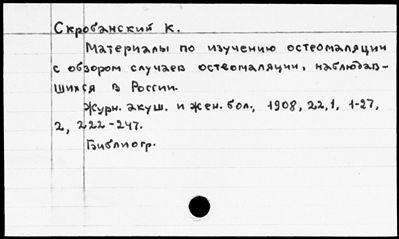 Скробанский К.
Материалы по изучению остеомаляции
с обзором случаев остеомаляции, наблюдав-
шихся в России.
Журн. акуш. и жен. бол., 1908, 22, 1, 1-27,
2, 222-247.
Библиогр.